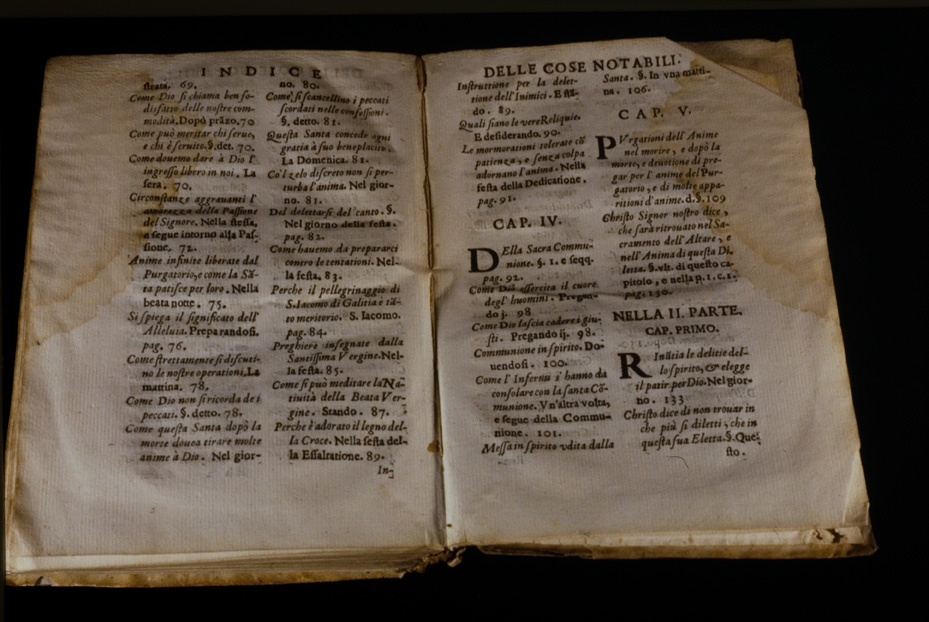 INDICE
stata. 69.
Come Dio si chiama ben so-
disfatto delle nostre com-
modità. Dopò prãzo. 70
Come può meritar chi serue,
e chi è seruito. §. det. 70.
Come douemo dare à Dio l'
ingresso libero in noi. La
sera. 70.
Circonstanze aggrauanti l'
amarezza della Passione
del Signore. Nella stessa,
e segue intorno alla Pas-
sione. 72.
Anime infinite liberate dal
Purgatorio, e come la Sã-
ta patisce per loro. Nella
beata notte. 75.
Si spiega il significato dell'
Alleluia. Preparandosi.
pag. 76.
Come strettamente si discuti-
no le nostre operationi. La
mattina. 78.
Come Dio non si ricorda de i
peccati. §. detto. 78.
Come questa Santa dopò la
morte doueа tirare molte
anime à Dio. Nel gior-
no. 80.
Come si scancellino i peccati
scordati nelle confessioni.
§. detto. 81.
Questa Santa concede ogni
gratia à suo beneplacito.
La Domenica. 81.
Co'l zelo discreto non si per-
turba l'anima. Nel gior-
no. 81.
Del delettarsi del canto. §.
Nel giorno della festa.
pag. 82.
Come hauemo da prepararci
contro le tentationi. Nel-
la festa. 83.
Perche il pellegrinaggio di
S. Iacomo di Galitia è tã-
to meritorio. S. Iacomo.
pag. 84.
Preghiere insegnate dalla
Santissima Vergine. Nel-
la festa. 85.
Come si può meditare la Na-
tiuità della Beata Ver-
gine. Stando. 87.
Perche è adorato il legno del-
la Croce. Nella festa del-
la Essaltatione. 89.
In-
DELLE COSE NOTABILI.
Instruttione per la delet-
tione dell'Inimici. E stã-
do. 89.
Quali siano le vere Reliquie.
E desiderando. 90.
Le mormorationi tolerate cõ
patienza, e senza colpa
adornano l'anima. Nella
festa della Dedicatione.
pag. 91.
CAP. IV.
DElla Sacra Commu-
nione. §. 1. e seqq.
pag. 92.
Come Dio essercita il cuore
degl'huomini. Pregan-
do j. 98
Come Dio lascia cadere i giu-
sti. Pregando ij. 98.
Communione in spirito. Do-
uendosi. 100.
Come l'Infermi s'hanno da
consolare con la santa Cõ-
munione. Vn'altra volta,
e segue della Commu-
nione. 101.
Messa in spirito vdita dalla
Santa. §. In vna matti-
na. 106.
CAP. V.
PVrgationi dell'Anime
nel morire, e dopò la
morte, e deuotione di pre-
gar per l'anime del Pur-
gatorio, e di molte appa-
ritioni d'anime. d. §. 109
Christo Signor nostro dice,
che sarà ritrouato nel Sa-
cramento dell'Altare, e
nell'Anima di questa Di-
letta. §. vlt. di questo ca-
pitolo, e nella p. 1. c. 1.
pag. 130.
NELLA II. PARTE.
CAP. PRIMO.
RInũtia le delitie del-
lo spirito, & elegge
il patir per Dio. Nel gior-
no. 133
Christo dice di non trouar in
che più si diletti, che in
questa sua Eletta. §. Que-
sto.